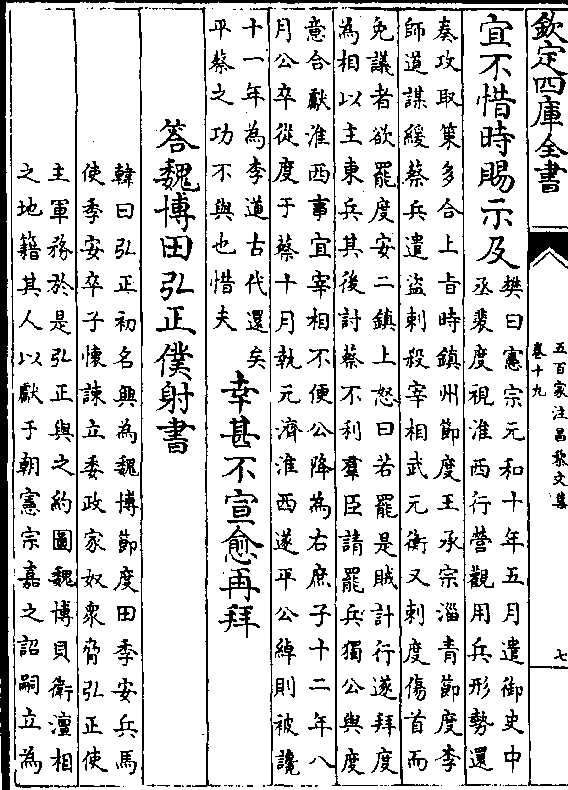 欽定四庫全書
五百家注昌黎文集
卷十九
七
宜不惜時賜示及
樊曰憲宗元和十年五月遣御史中
丞裴度視淮西行營觀用兵形勢還
奏攻取策多合上旨時鎮州節度王承宗淄青節度李
師道謀緩蔡兵遣盜刺殺宰相武元衡又刺度傷首而
免議者欲罷度安二鎮上怒曰若罷是賊計行遂拜度
為相以主東兵其後討蔡不利羣臣請罷兵獨公與度
意合獻淮西事宜宰相不便公降為右庶子十二年八
月公卒從度于蔡十月執元濟淮西遂平公綽則被讒
十一年為李道古代還矣
平蔡之功不與也惜夫
幸甚不宣愈再拜
答魏博田弘正僕射書
韓曰弘正初名興為魏博節度田季安兵馬
使季安卒子懷諫立委政家奴衆脅弘正使
主軍務於是弘正與之約圖魏博貝衛澶相
之地籍其人以獻于朝憲宗嘉之詔嗣立為